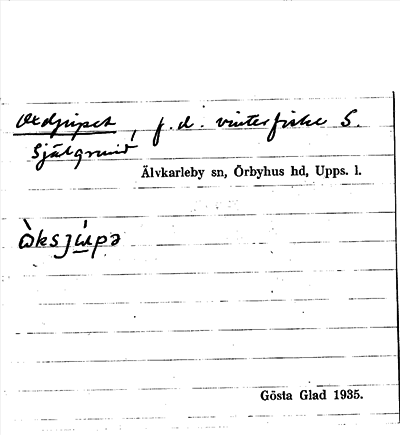 Oxdjupet, f.d. vinterfiske S.
Själgrund
Älvkarleby sn, Örbyhus hd, Upps. l.
ὼksjúpə
Gösta Glad 1935.